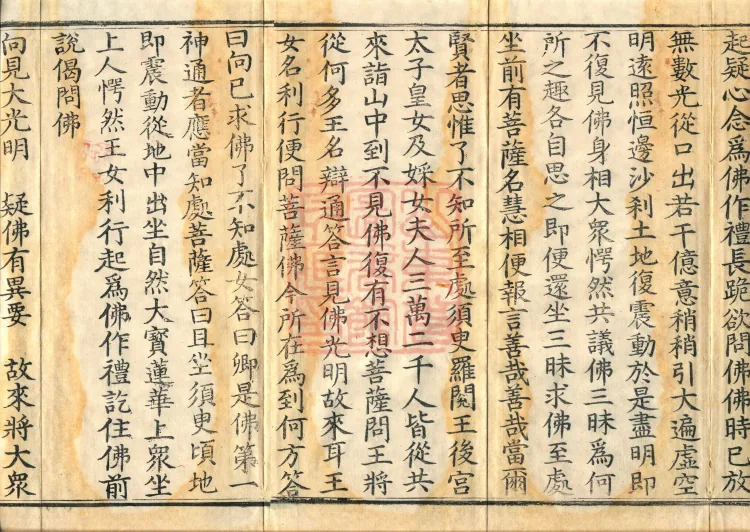 起疑心念為佛作禮長跪欲問佛佛時已放
無數光從口出若干億意稍稍引大遍虛空
明遠照恒邊沙利土地復震動於是盡明即
不復見佛身相大眾愕然共議佛三昧為何
所之趣各自思之即便還坐三昧求佛至處
坐前有菩薩名慧相便報言善哉善哉當爾
賢者思惟了不知所至處須臾羅閱王後宮
太子皇女及婇女夫人三萬二千人皆從共
來詣山中到不見佛復有不想菩薩問王將
從何多王名辯通答言見佛光明故來耳王
女名利行便問菩薩佛今所在為到何方答
曰向已求佛了不知處女答曰卿是佛第一
神通者應當知處菩薩答曰且坐須臾頃地
即震動從地中出坐自然大寶蓮華上眾坐
上人愕然王女利行起為佛作禮訖住佛前
說偈問佛
向見大光明 疑佛有異要 故來將大眾